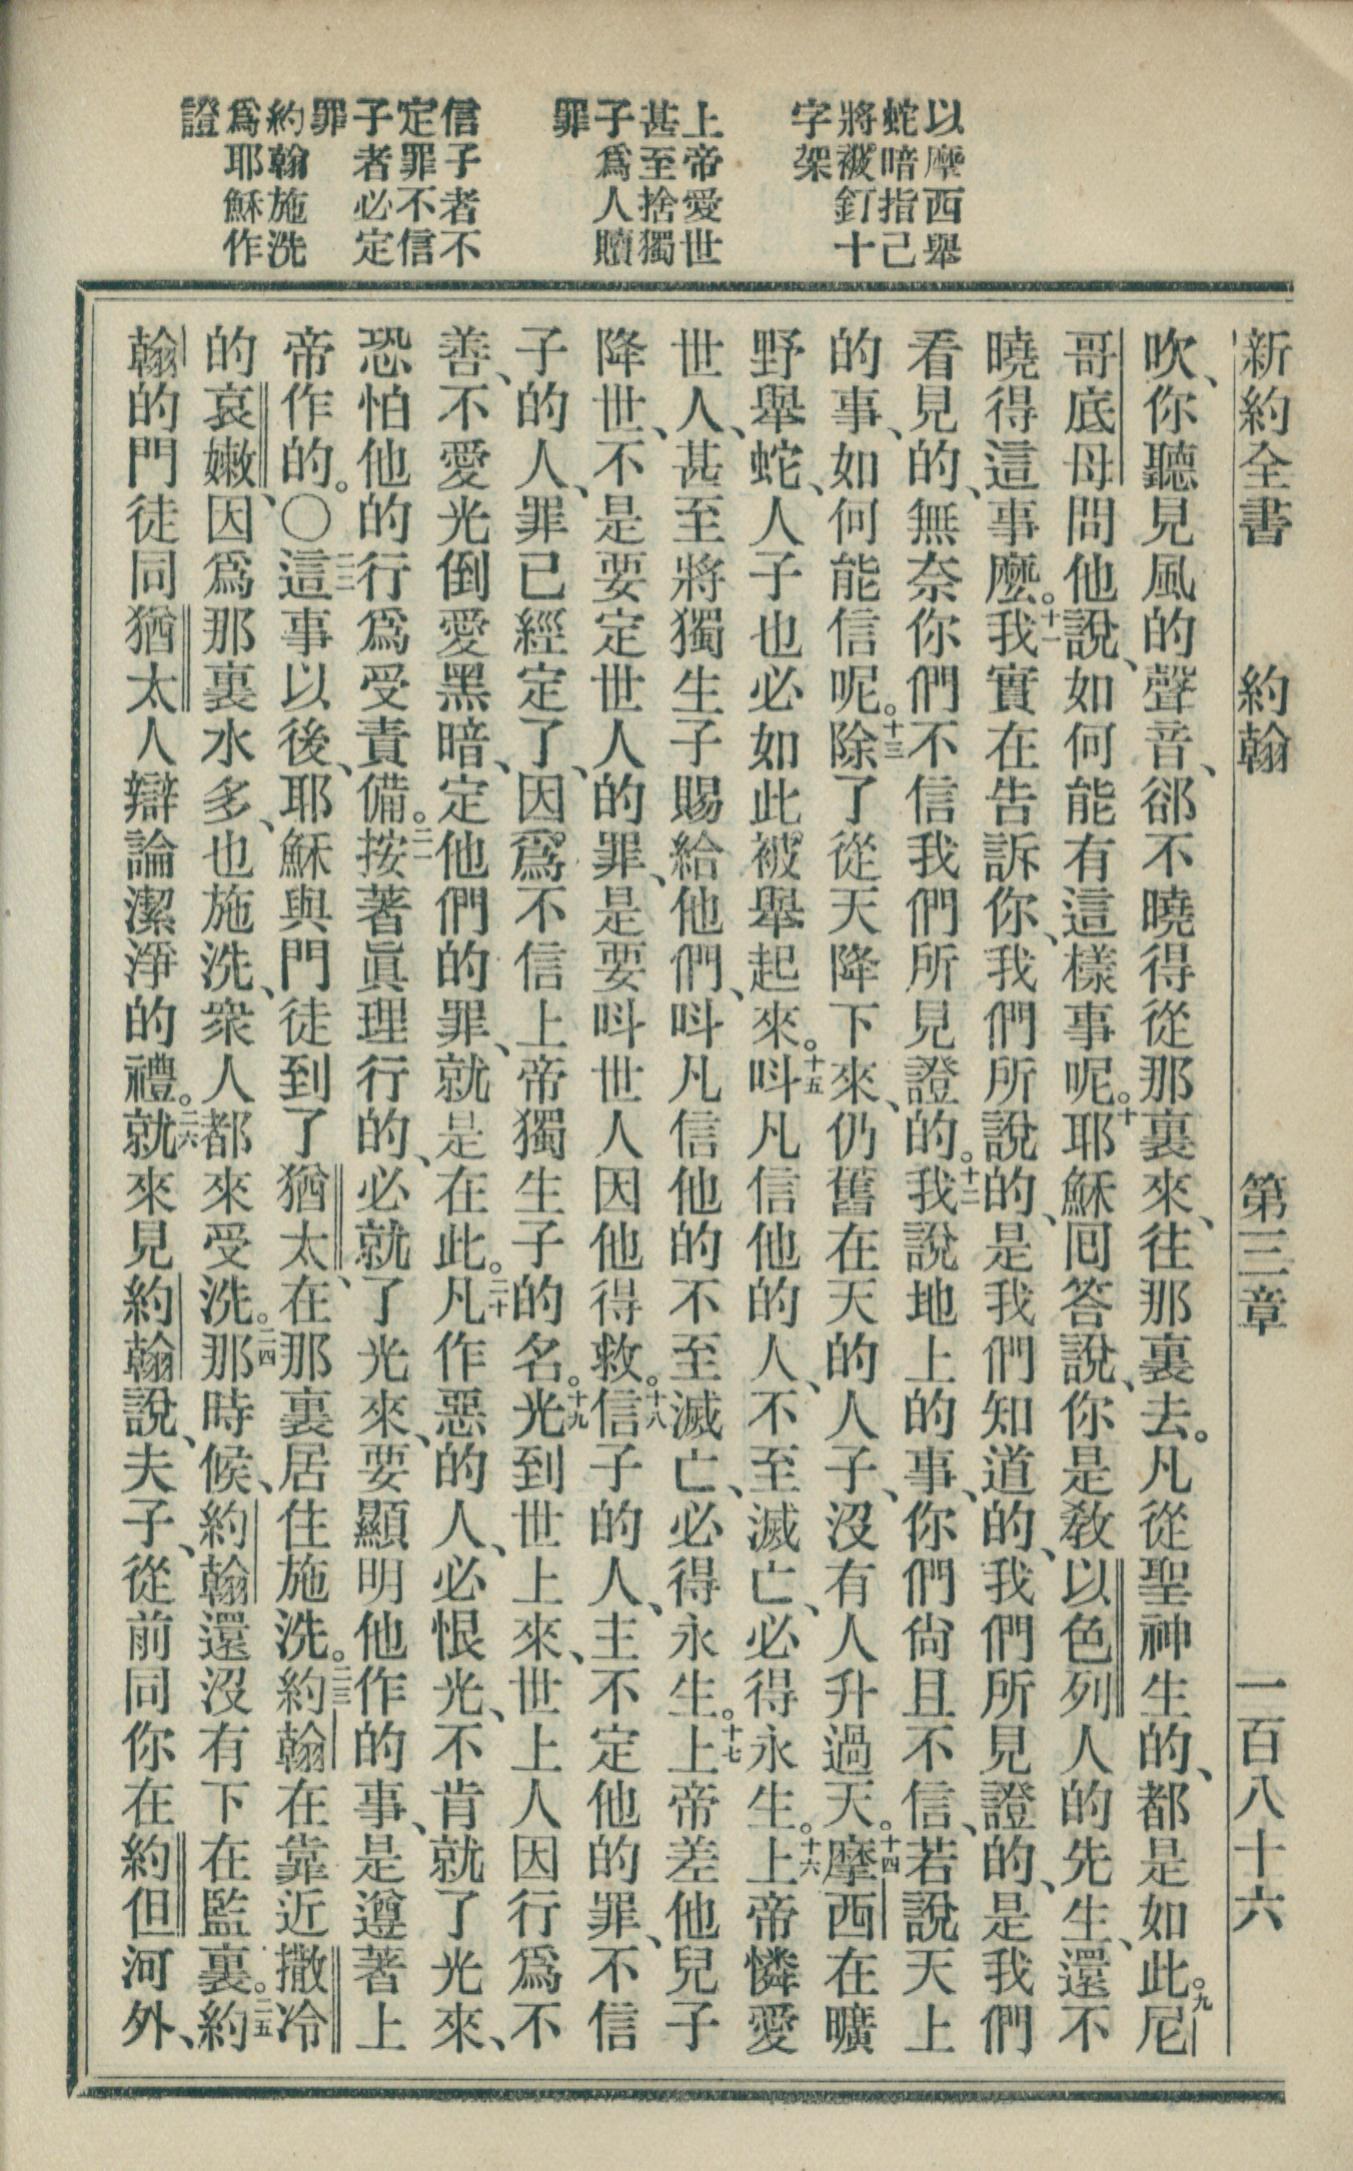 以摩西舉
蛇暗指己
將被釘十
字架
上帝愛世
甚至捨獨
子爲人贖
罪
信子者不
定罪不信
子者必定
罪
約翰施洗
爲耶穌作
證
新約全書 約翰 第三章 一百八十六
吹、你聽見風的聲音、郤不曉得從那裏來、往那裏去。凡從聖神生的、都是如此。九尼
哥底母問他說、如何能有這樣事呢。十耶穌囘答說、你是敎以色列人的先生、還不
曉得這事麽。十一我實在告訴你、我們所說的、是我們知道的、我們所見證的、是我們
看見的、無奈你們不信我們所見證的。十二我說地上的事、你們尙且不信、若說天上
的事、如何能信呢。十三除了從天降下來、仍舊在天的人子、沒有人升過天。十四摩西在曠
野舉蛇、人子也必如此被舉起來。十五呌凡信他的人、不至滅亡、必得永生。十六上帝憐愛
世人、甚至將獨生子賜給他們、呌凡信他的不至滅亡、必得永生。十七上帝差他兒子
降世、不是要定世人的罪、是要呌世人因他得救。十八信子的人、主不定他的罪、不信
子的人、罪已經定了、因爲不信上帝獨生子的名。十九光到世上來、世上人因行爲不
善、不愛光倒愛黑暗、定他們的罪、就是在此。二十凡作惡的人、必恨光、不肯就了光來、
恐怕他的行爲受責備。二一按著眞理行的、必就了光來、要顯明他作的事、是遵著上
帝作的。〇二二這事以後、耶穌與門徒到了猶太、在那裏居住施洗。二三約翰在靠近撒冷
的哀嫩、因爲那裏水多、也施洗、衆人都來受洗。二四那時候、約翰還沒有下在監裏。二五約
翰的門徒同猶太人辯論潔淨的禮。二六就來見約翰說、夫子、從前同你在約但河外、